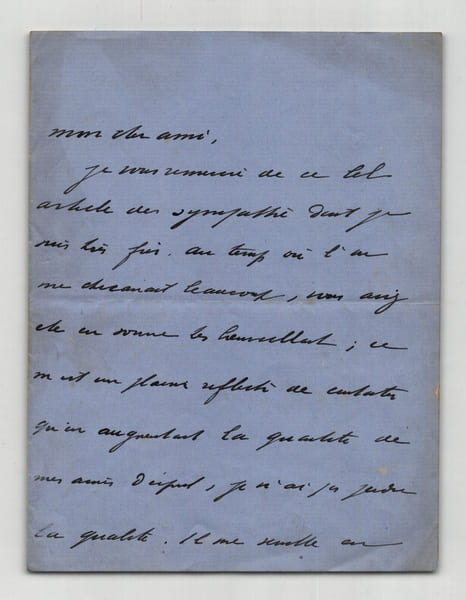 mon cher ami,
je vous remercie de ce bel
article de sympathie dont je
suis très fier. au temps où l'on
me discutait beaucoup, vous avez
été en somme très bienveillant ; ce
m'est un plaisir de constater
qu'en augmentant la quantité de
mes amis d'esprit, je n'ai pas perdu
la qualité. Il me semble